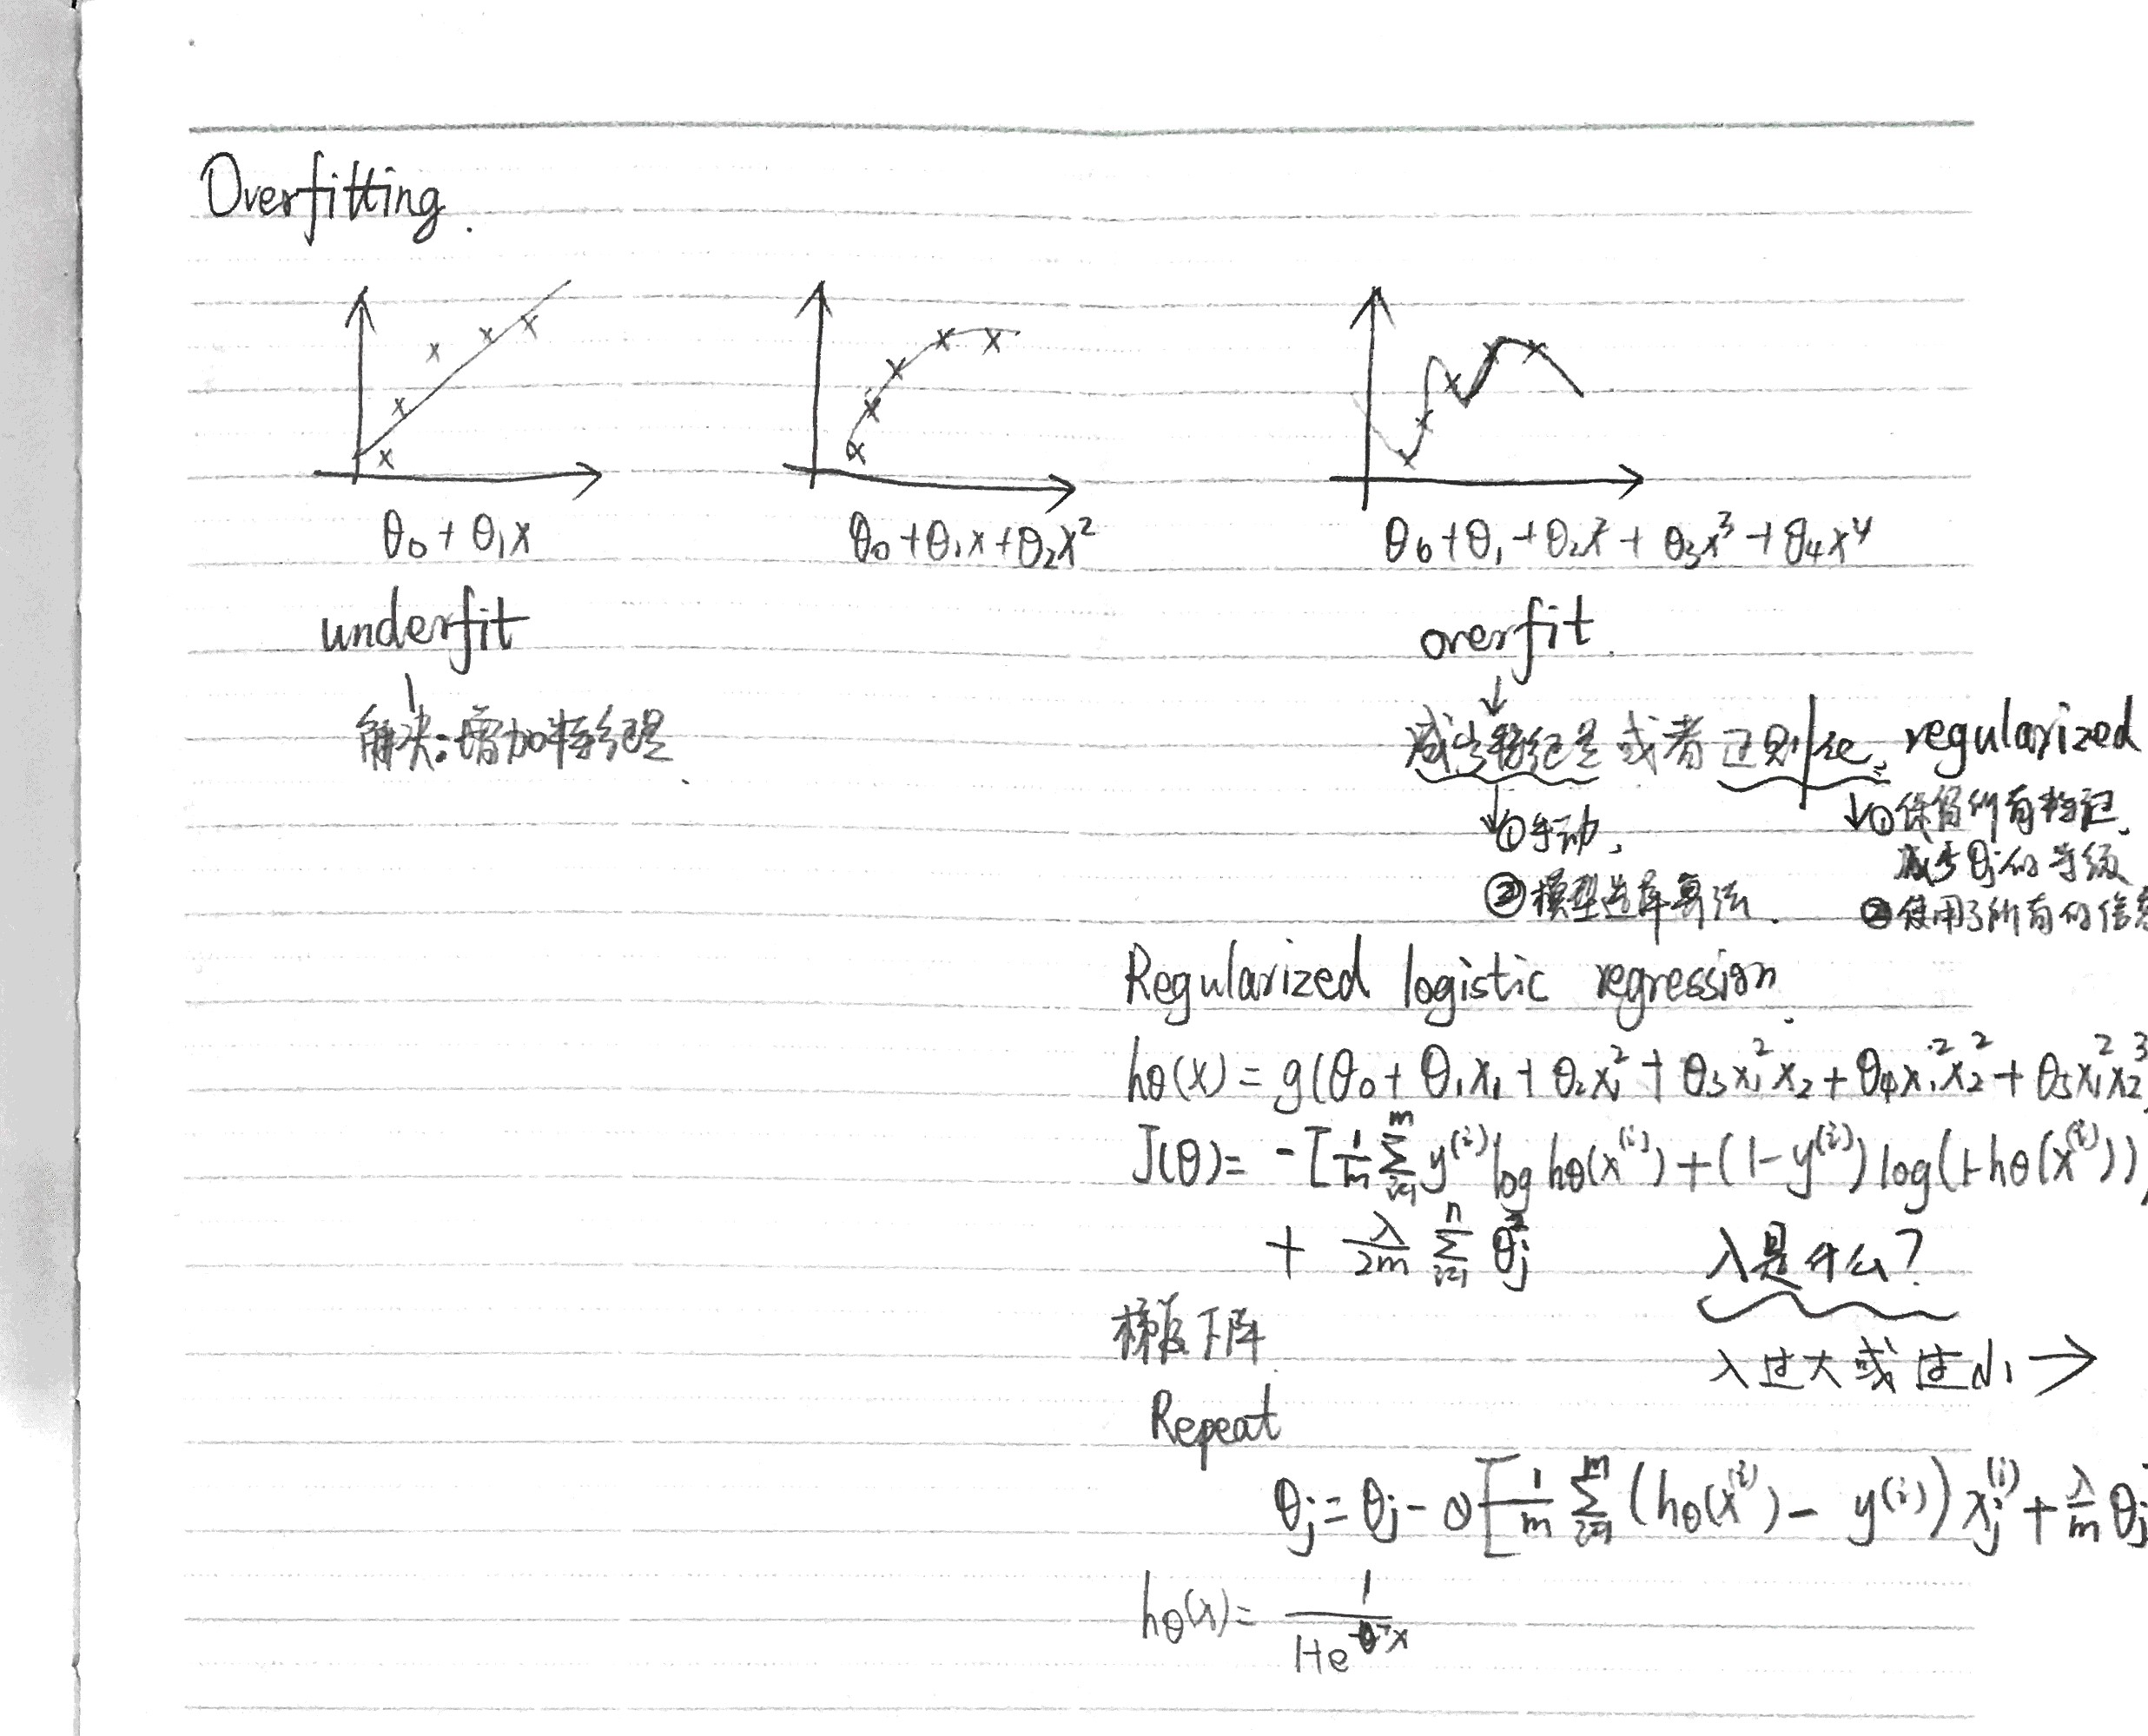 Overfitting.
θ₀ + θ₁x
θ₀ + θ₁x + θ₂x²
θ₀ + θ₁ + θ₂x² + θ₃x³ + θ₄x⁴
underfit
overfit.
解决:增加特征量.
减少特征量 或者 正则化. regularized
①手动.
②模型选择算法.
①保留所有特征.
减少θj的等级
②使用了所有的信息
Regularized logistic regression.
hθ(x) = g(θ₀ + θ₁x₁ + θ₂x₁² + θ₃x₁²x₂ + θ₄x₁²x₂² + θ₅x₁²x₂³
J(θ) = -[1/m Σᵢ₌₁ᵐ y⁽ⁱ⁾ log hθ(x⁽ⁱ⁾) + (1-y⁽ⁱ⁾) log(1-hθ(x⁽ⁱ⁾))
+ λ/2m Σᵢ₌₁ⁿ θj²
λ是什么?
梯度下降.
λ过大或过小→
Repeat
θj = θj - α[1/m Σᵢ₌₁ᵐ (hθ(x⁽ⁱ⁾) - y⁽ⁱ⁾) xj⁽ⁱ⁾ + λ/m θj
hθ(x) = 1/(1+e^(-θᵀx))